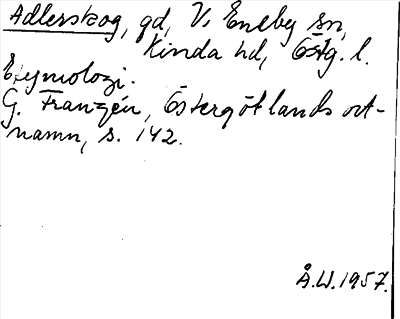 Adlerskog, gd, V. Eneby sn,
Kinda hd, Östg. l.
Etymologi.
G. Franzén, Östergötlands ort-
namn, s. 142.
Å.W.1957.